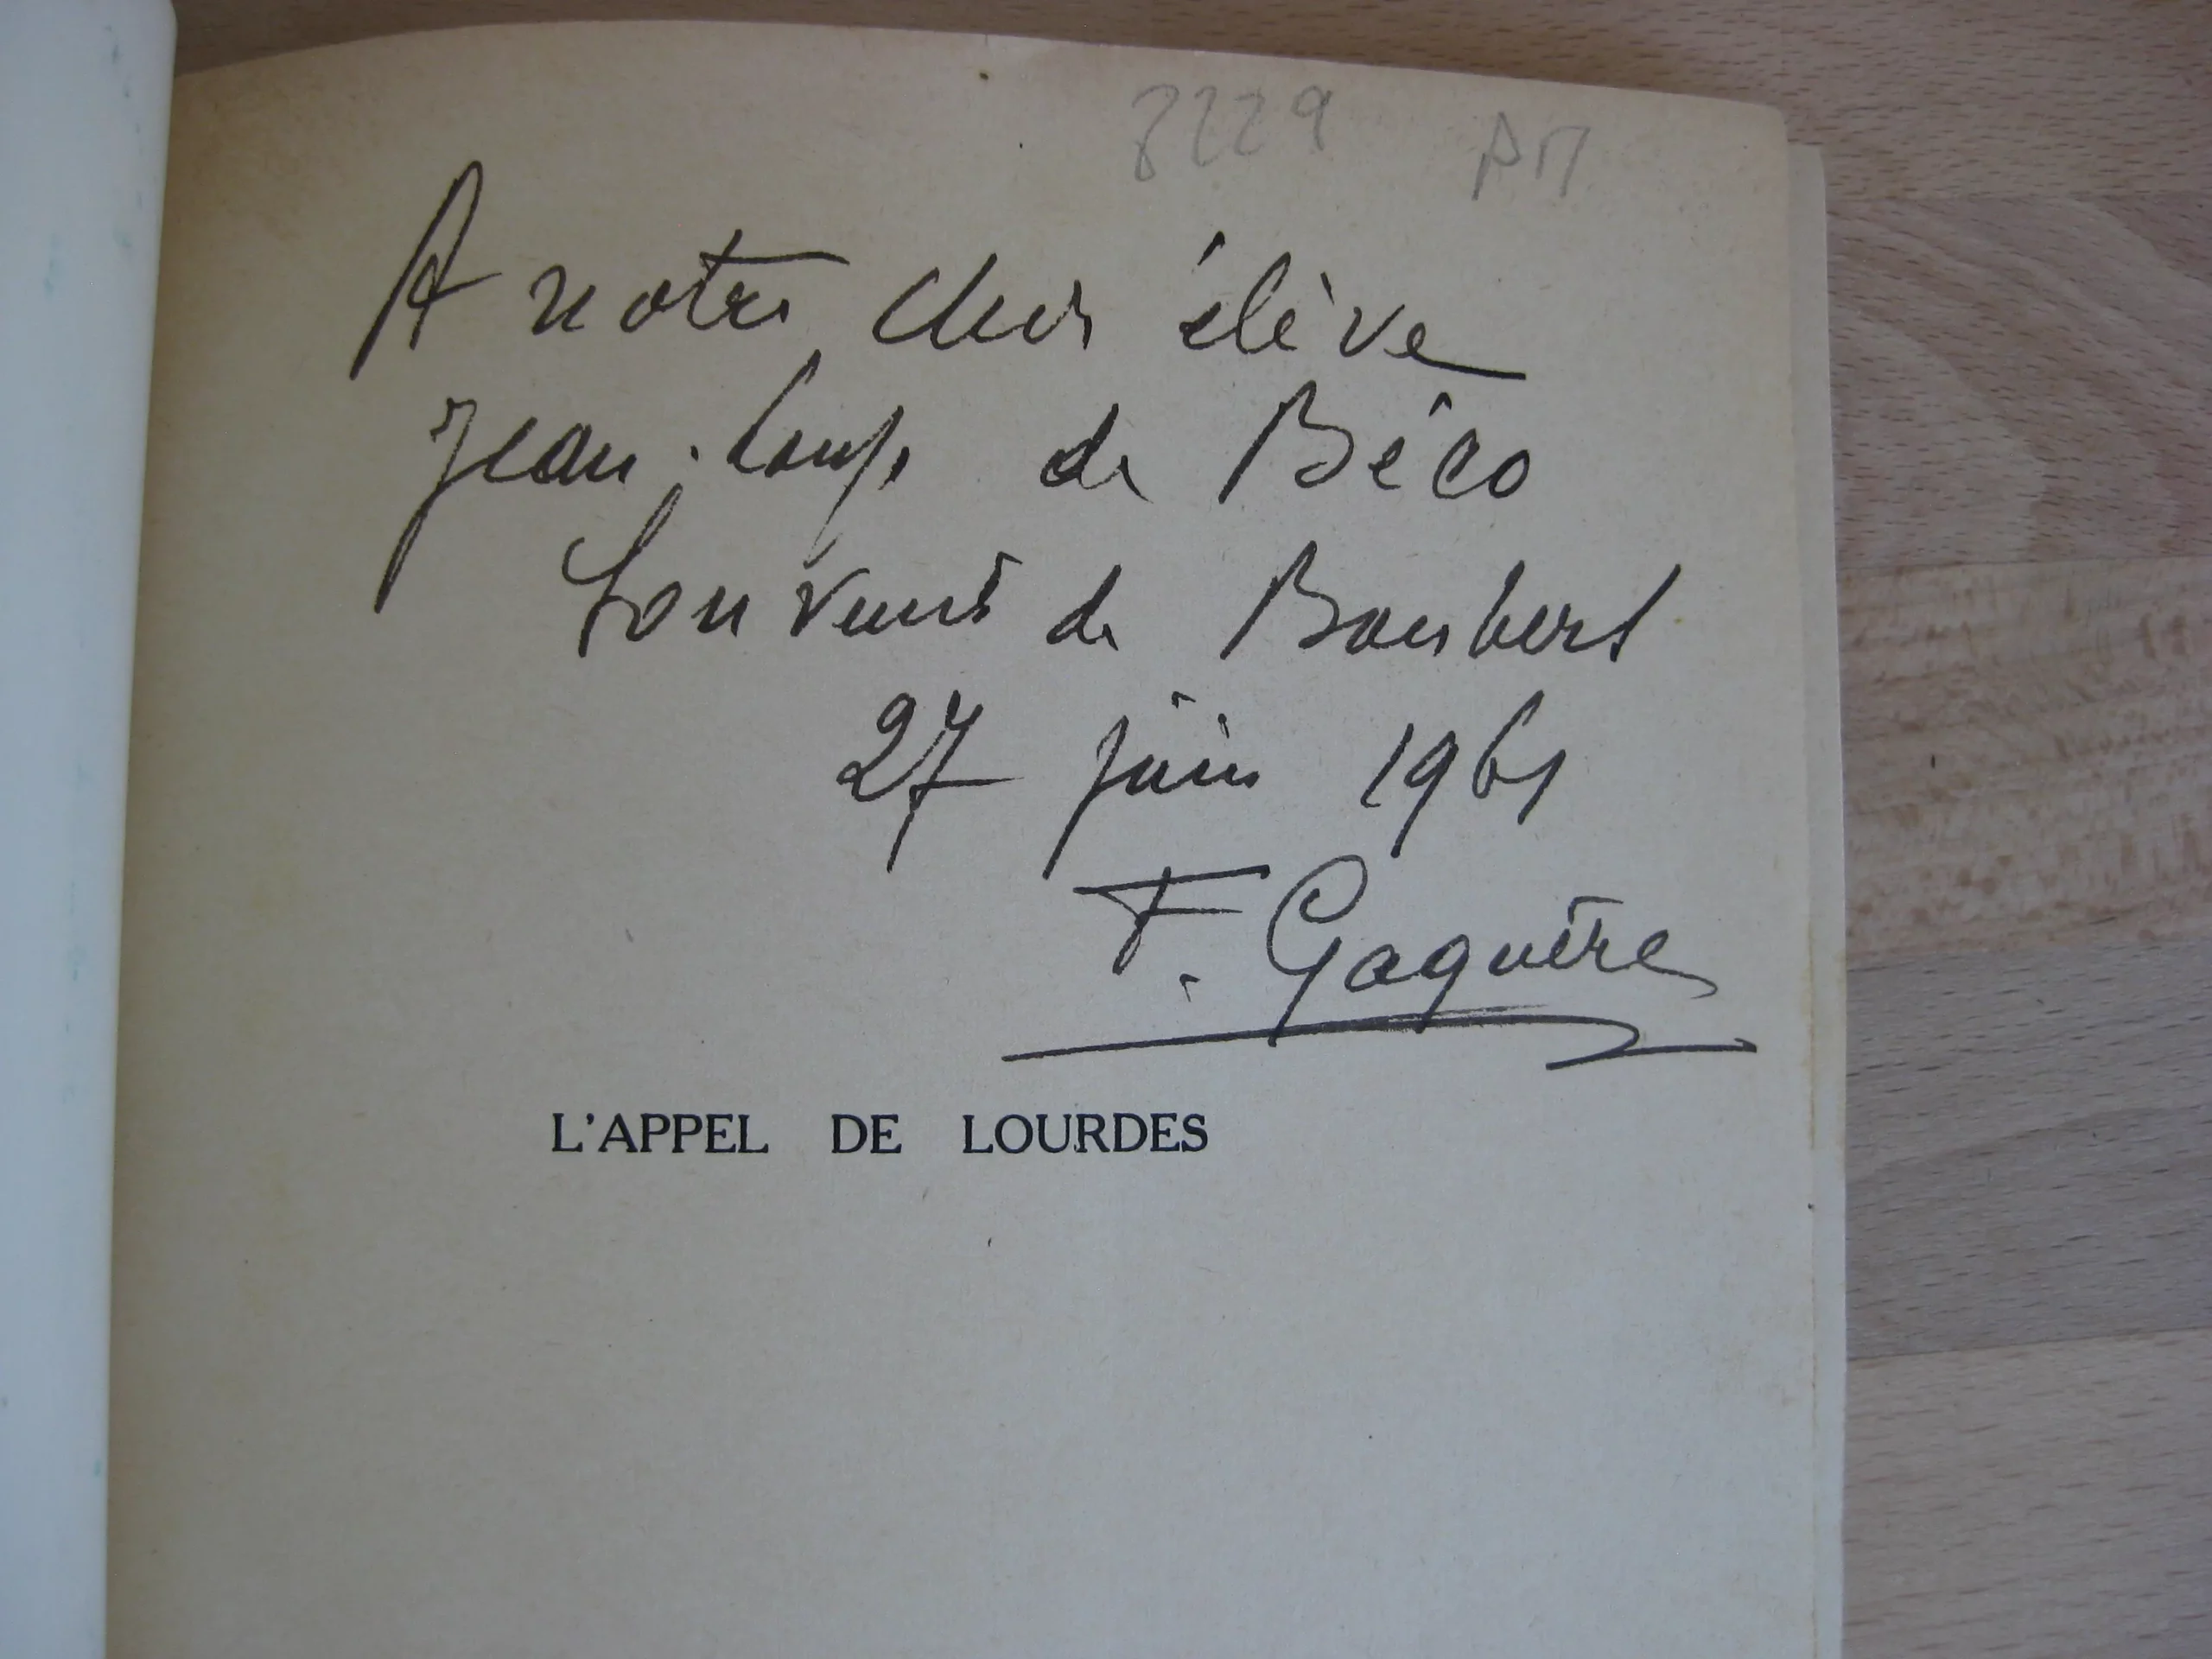 8229 AM
A notre cher élève
Jean-Loup de Béco
Souvenir de Boubers
27 juin 1961
F. Gaquère
L'APPEL DE LOURDES